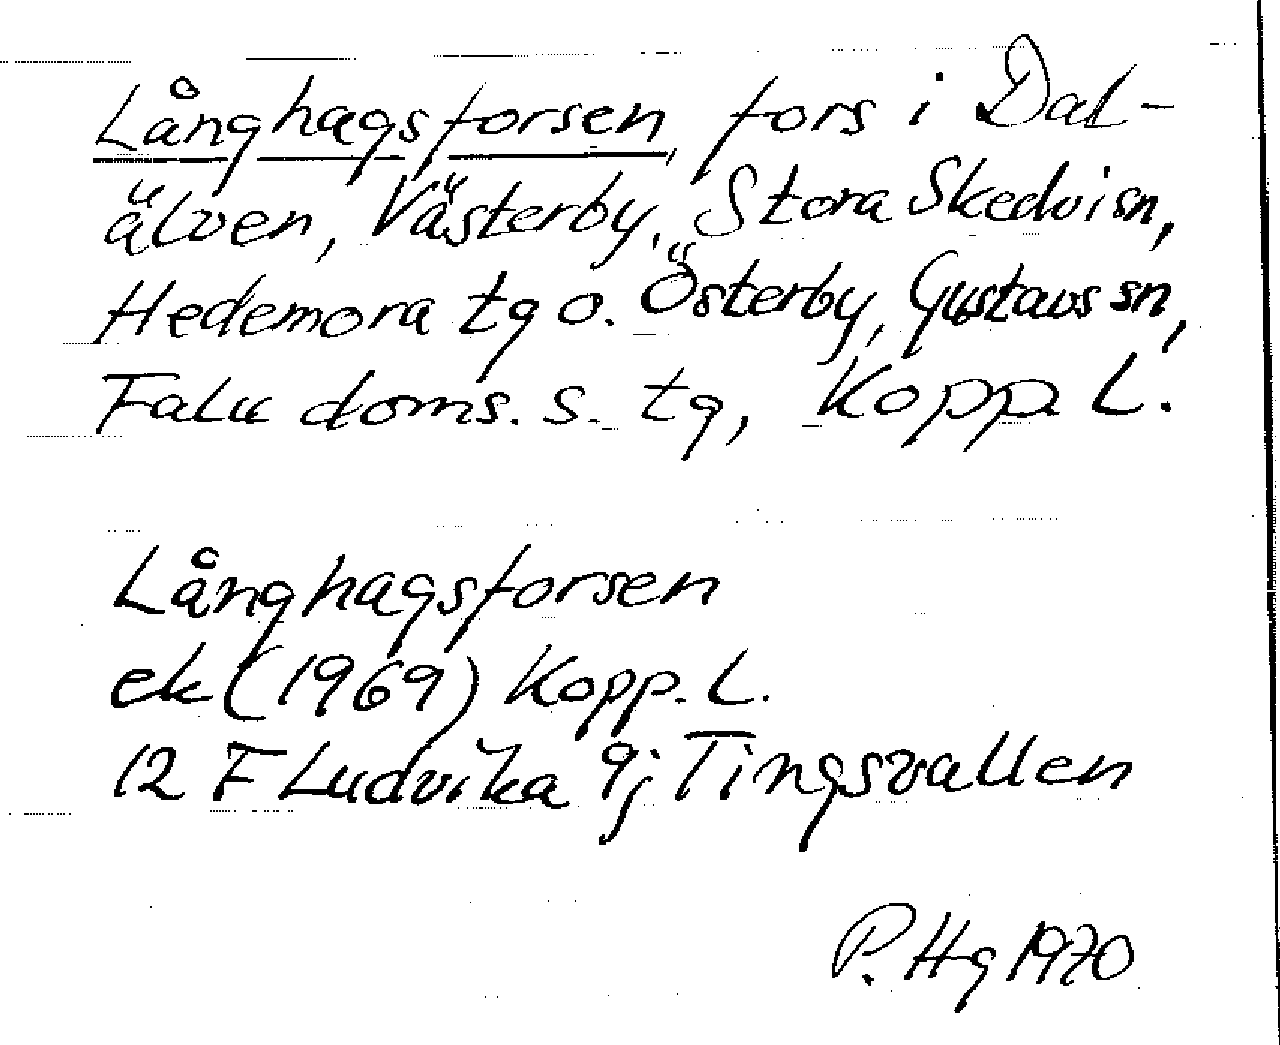 Långhagsforsen, fors i Dal-
älven, Västerby, Stora Skedvi sn,
Hedemora tg o. Österby, Gustavs sn,
Falu doms. s. tg, Kopp L.
Långhagsforsen
ek (1969) Kopp. L.
12 F Ludvika 9j Tingsvallen
P. Hg 1970